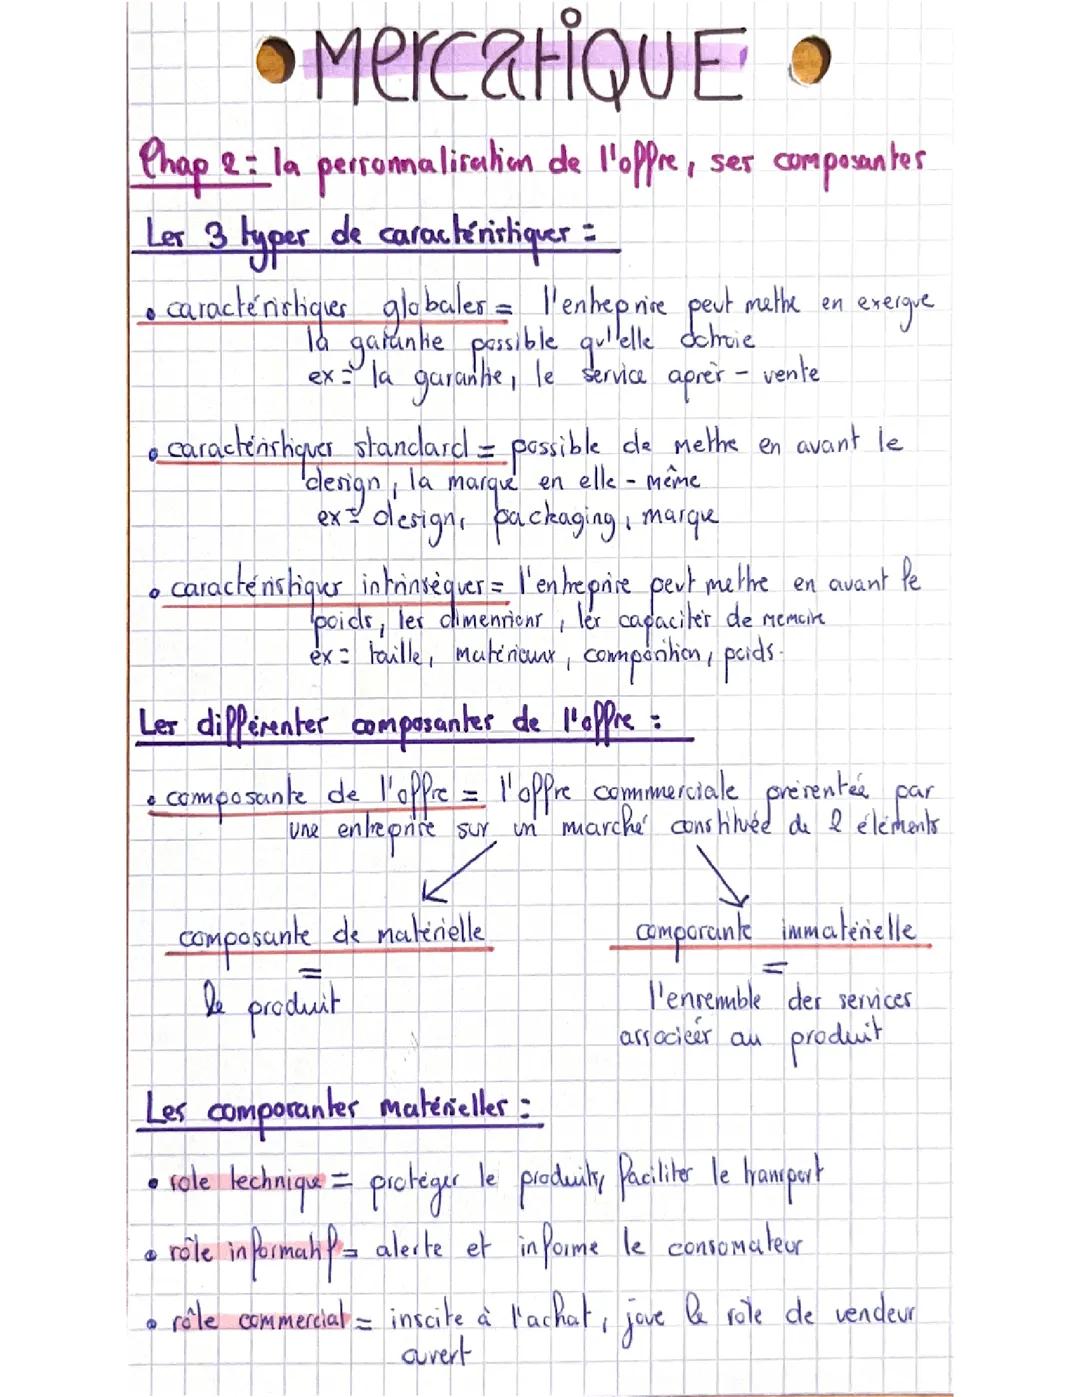 MercatiQUE
Chap 2 : la personnalisation de l'offre, ses composantes
Les 3 types de caractéristiques :
• caractéristiques globales = l'entreprise peut mettre en exergue
la garantie possible qu'elle octroie
ex = la garantie, le service après - vente
• caractéristiques standard = possible de mettre en avant le
design, la marque en elle - même
ex = design, packaging, marque
• caractéristiques intrinsèques = l'entreprise peut mettre en avant le
poids, les dimensions, les capacités de memoire
ex = taille, matériaux, composition, poids.
Les différentes composantes de l'offre :
• composante de l'offre = l'offre commerciale présentée par
une entreprise sur un marché constituée de 2 éléments
composante de matérielle
composante immatérielle
=
=
le produit
l'ensemble des services
associées au produit
Les composantes matérielles :
• role technique = protéger le produits, faciliter le transport
• rôle informatif = alerte et informe le consomateur
• rôle commercial = inscite à l'achat, joue le role de vendeur
avert